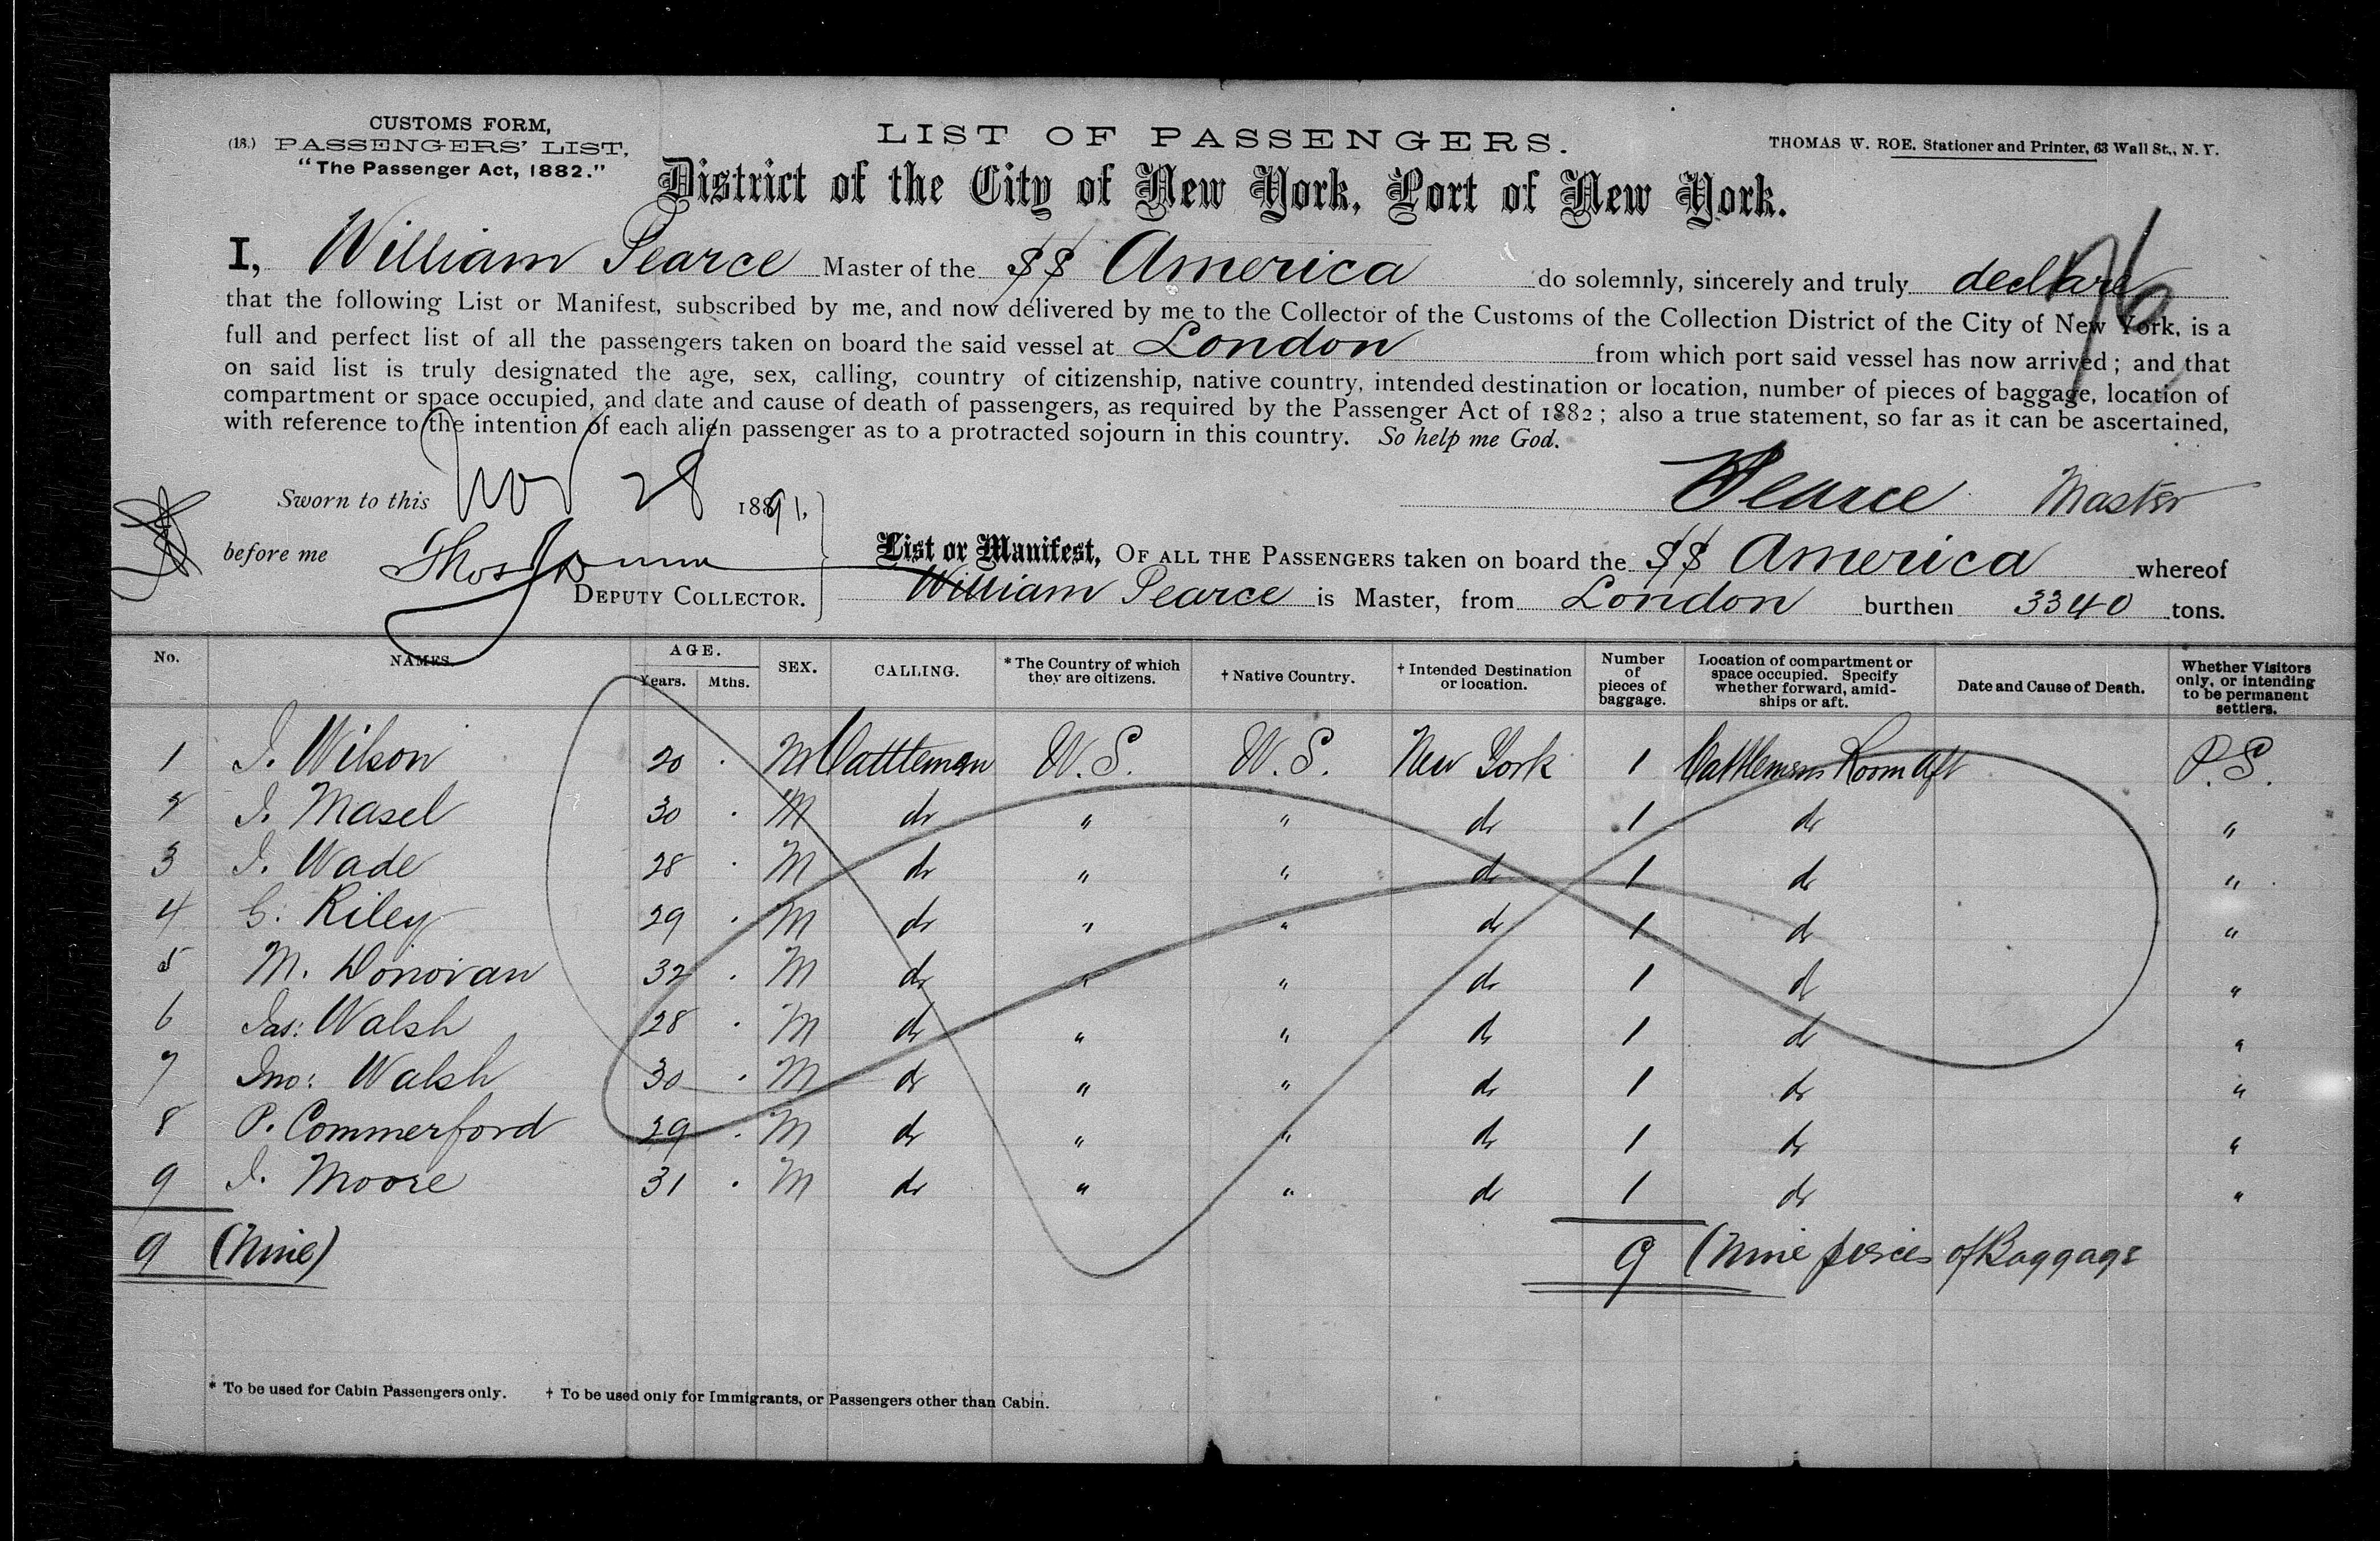 CUSTOMS FORM,
(18.) PASSENGERS' LIST,
"The Passenger Act, 1882."
LIST OF PASSENGERS.
THOMAS W. ROE, Stationer and Printer, 63 Wall St., N. Y.
District of the City of New York, Port of New York.
76
I, William Pearce Master of the SS America do solemnly, sincerely and truly declare
that the following List or Manifest, subscribed by me, and now delivered by me to the Collector of the Customs of the Collection District of the City of New York, is a
full and perfect list of all the passengers taken on board the said vessel at London from which port said vessel has now arrived; and that
on said list is truly designated the age, sex, calling, country of citizenship, native country, intended destination or location, number of pieces of baggage, location of
compartment or space occupied, and date and cause of death of passengers, as required by the Passenger Act of 1882; also a true statement, so far as it can be ascertained,
with reference to the intention of each alien passenger as to a protracted sojourn in this country. So help me God.
Sworn to this Nov 28 1891.
Pearce Master
before me Thos
DEPUTY COLLECTOR.
List or Manifest, OF ALL THE PASSENGERS taken on board the SS America whereof
William Pearce is Master, from London burthen 3340 tons.
No. NAMES. AGE. Years. Mths. SEX. CALLING. * The Country of which they are citizens. † Native Country. † Intended Destination or location. Number of pieces of baggage. Location of compartment or space occupied. Specify whether forward, amidships or aft. Date and Cause of Death. Whether Visitors only, or intending to be permanent settlers.
1 J. Wilson 20 . M Cattleman U.S. U.S. New York 1 Cattlemens Room Aft P.S.
2 J. Masel 30 . M do " " do 1 do "
3 J. Wade 28 . M do " " do 1 do "
4 G. Riley 29 . M do " " do 1 do "
5 M. Donovan 32 . M do " " do 1 do "
6 Jas: Walsh 28 . M do " " do 1 do "
7 Jno: Walsh 30 . M do " " do 1 do "
8 P. Commerford 29 . M do " " do 1 do "
9 J. Moore 31 . M do " " do 1 do "
9 (Nine) 9 (Nine pieces of Baggage
* To be used for Cabin Passengers only. † To be used only for Immigrants, or Passengers other than Cabin.